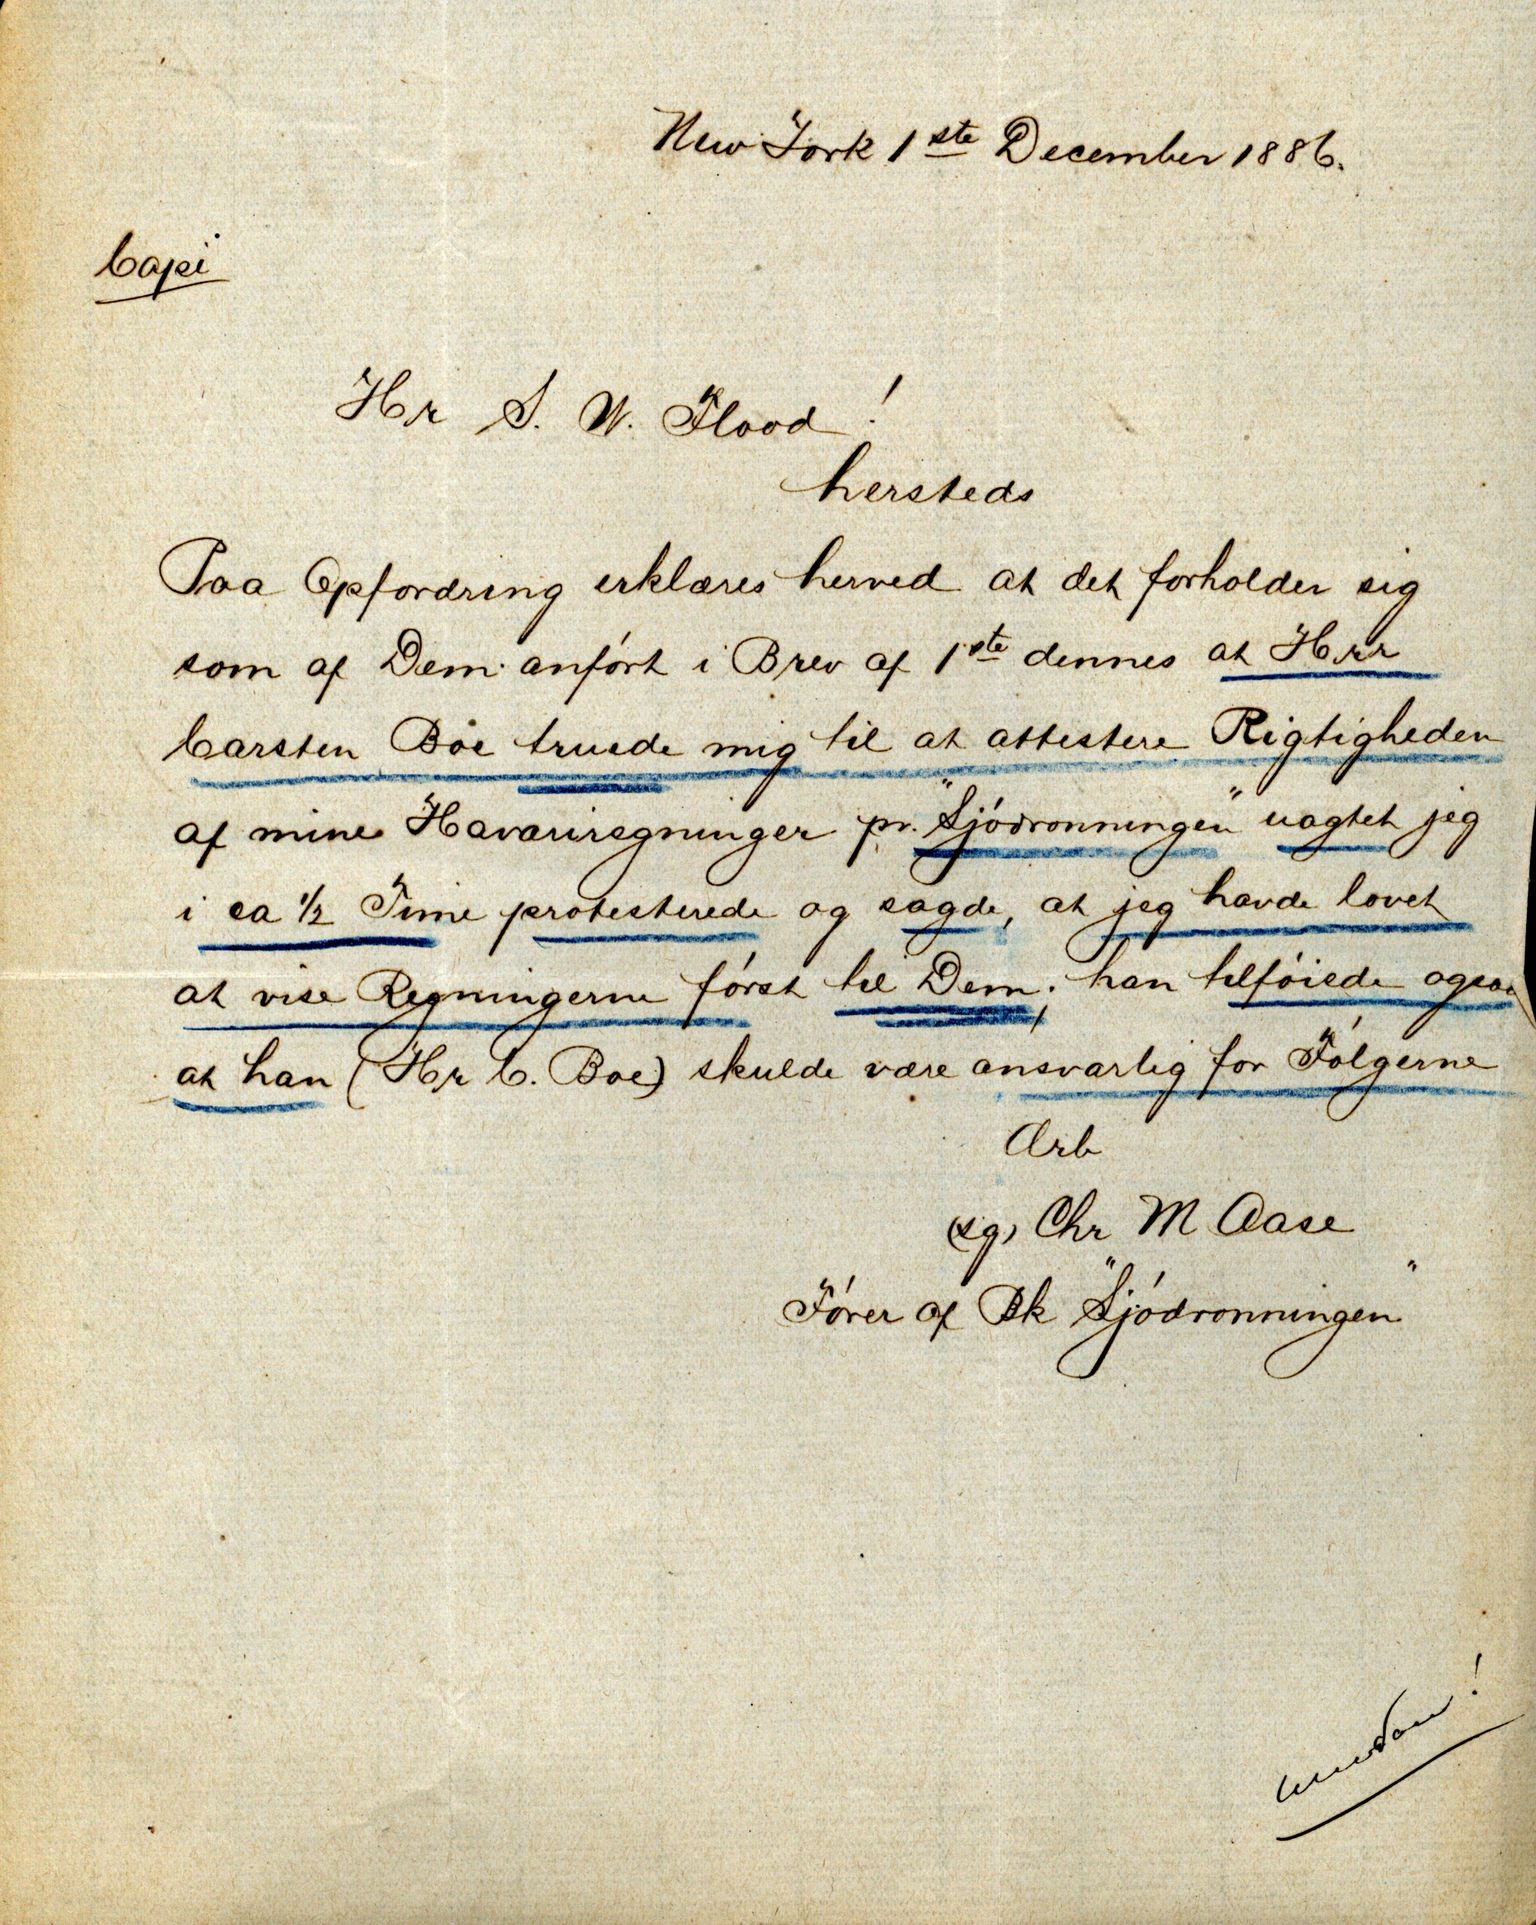 New York 1ste December 1886.
Copi
Hr S. W. Flood!
hersteds
Paa Opfordring erklæres herved at det forholder sig
som af Dem anført i Brev af 1ste dennes at Herr
Carsten Boe truede mig til at attestere Rigtigheden
af mine Havariregninger pr. "Sjódronningen" uagtet jeg
i ca 1/2 Time protesterede og sagde, at jeg havde lovet
at vise Regningerne først til Dem; han tilføiede ogsaa
at han (Hr C. Boe) skulde være ansvarlig for Følgerne
Ærb
(sg) Chr M Aase
Fører af Bk "Sjódronningen"